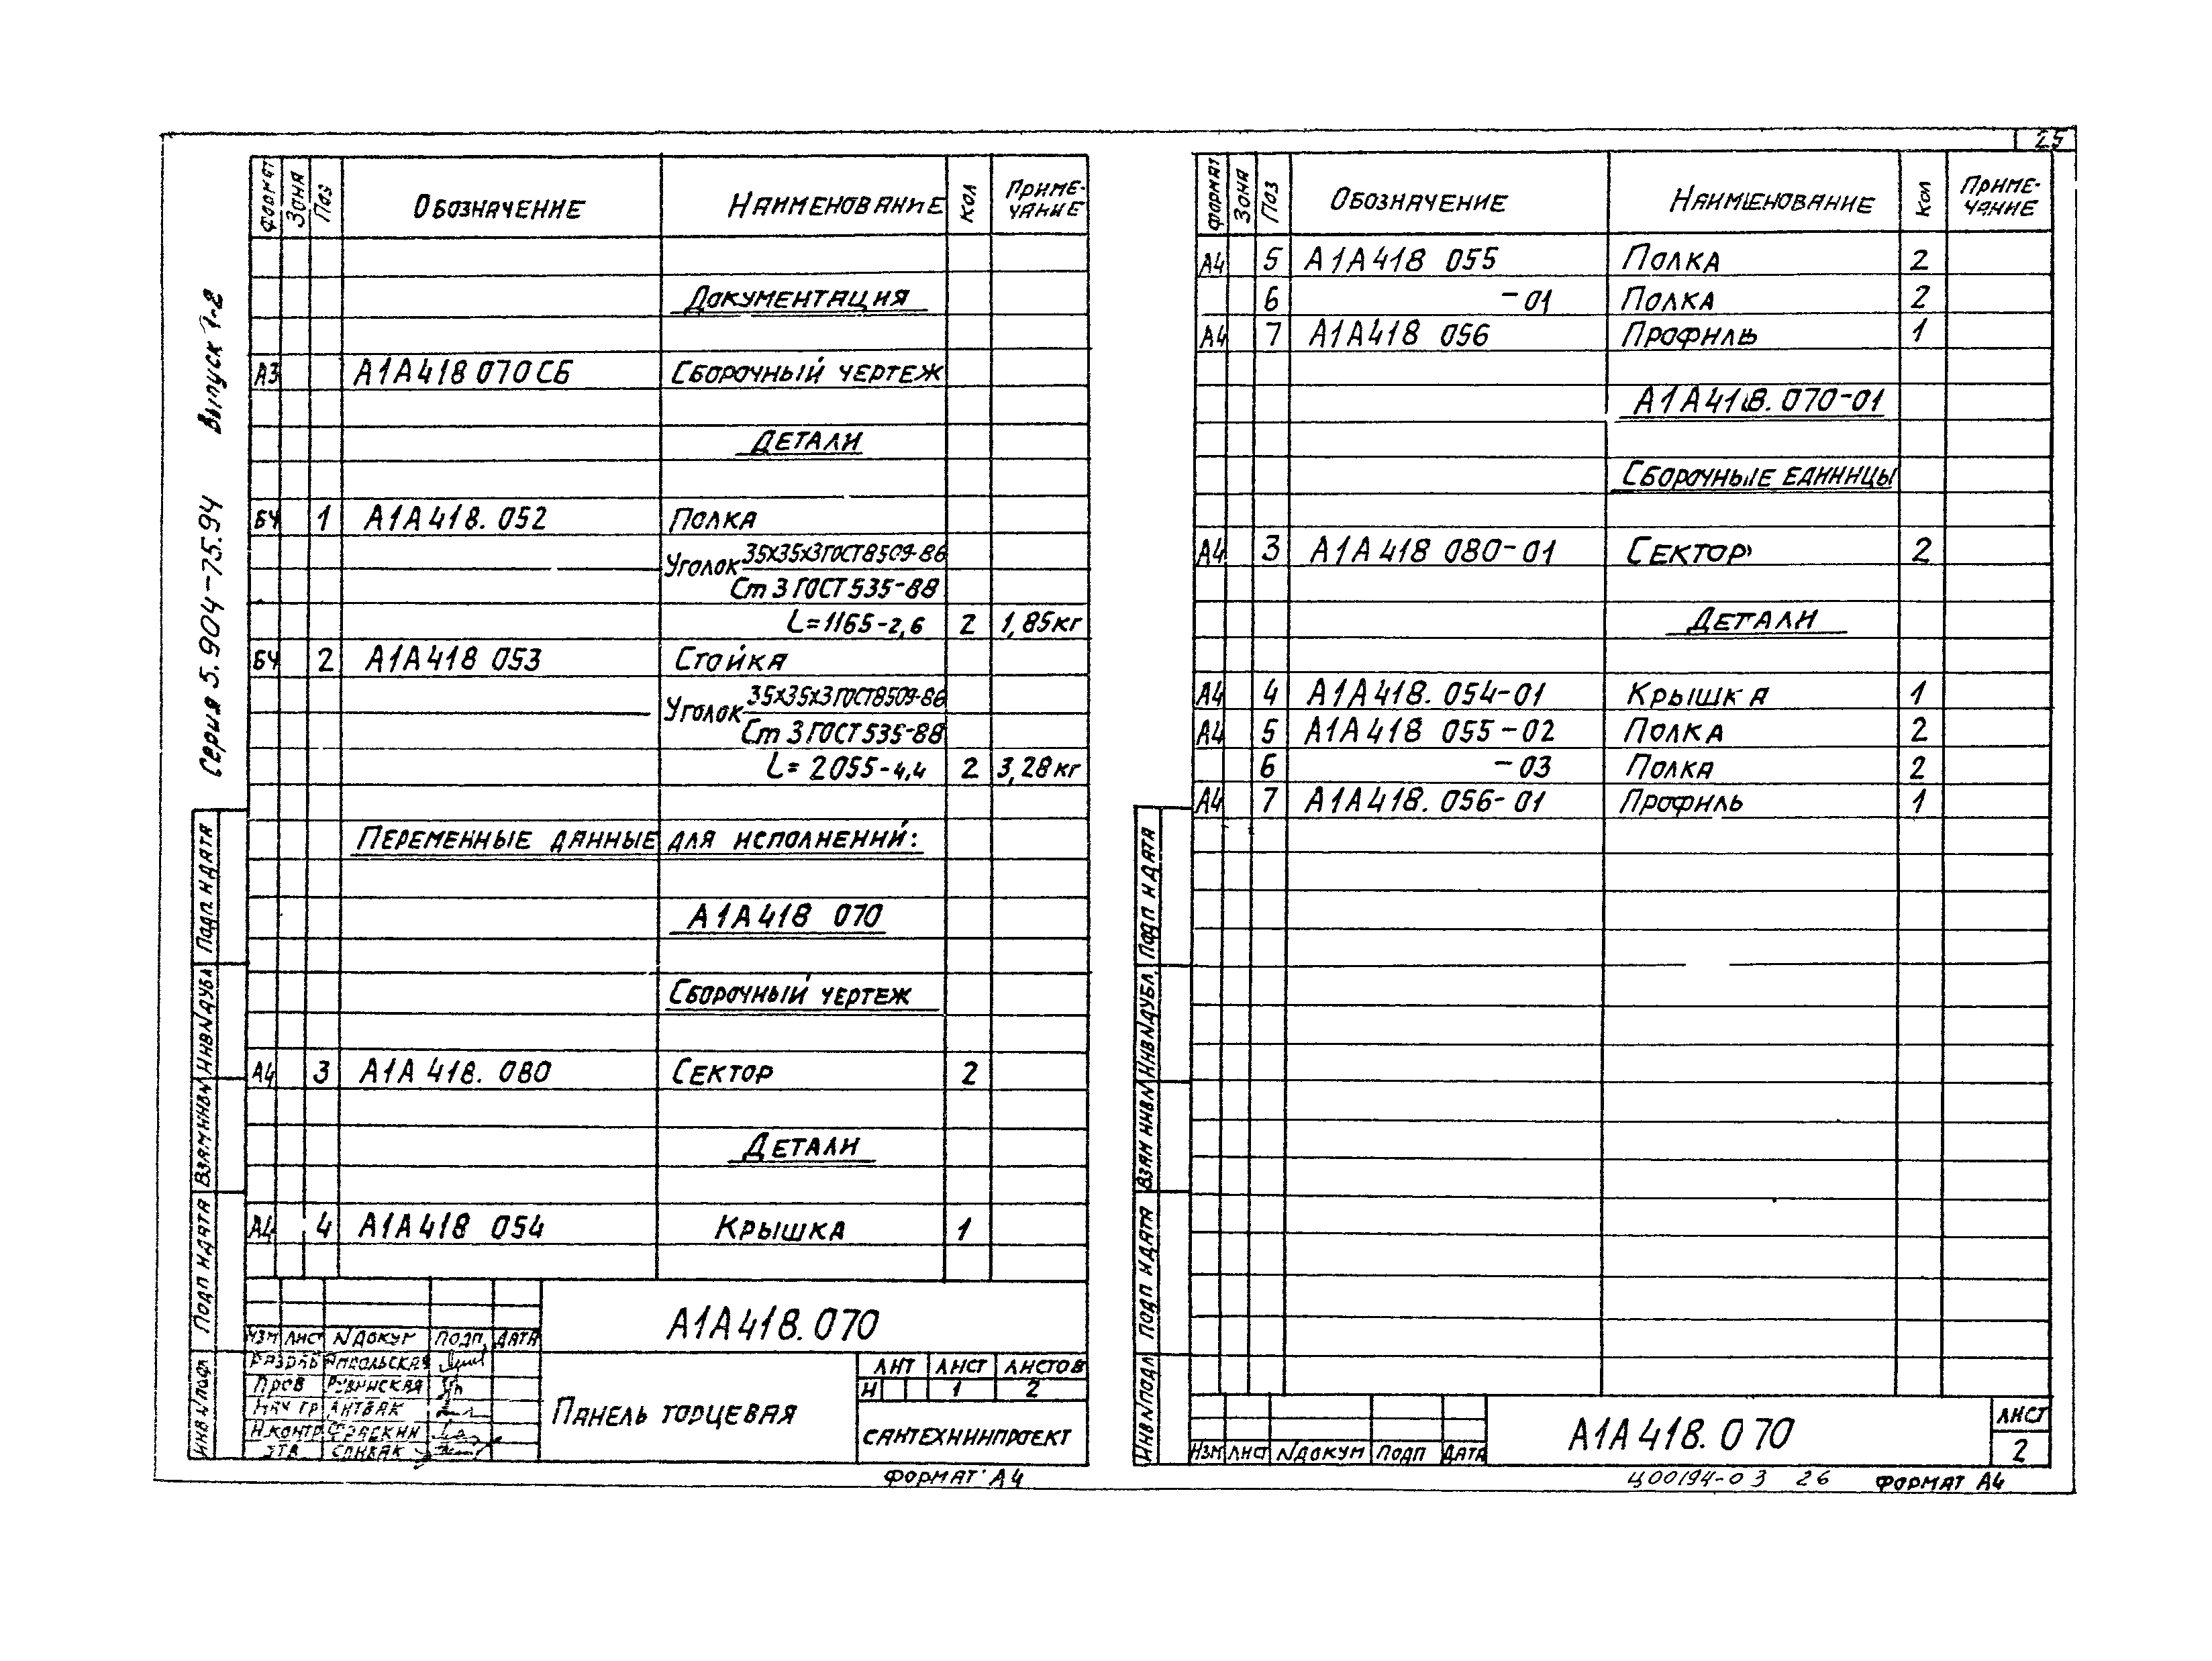 25
Серия 5.904-75.94 Выпуск 1-2
Формат Зона Поз Обозначение Наименование Кол Приме-
чание
Документация
А3 А1А418 070СБ Сборочный чертеж
Детали
БЧ 1 А1А418. 052 Полка
Уголок 35х35х3 ГОСТ 8509-86
Ст 3 ГОСТ 535-88
L=1165-2,6 2 1,85кг
БЧ 2 А1А418 053 Стойка
Уголок 35х35х3 ГОСТ 8509-86
Ст 3 ГОСТ 535-88
L= 2055-4,4 2 3,28кг
Переменные данные для исполнений:
А1А418 070
Сборочный чертеж
А4 3 А1А 418. 080 Сектор 2
Детали
А4 4 А1А418 054 Крышка 1
Инв N подл Подп и дата Взам инв N Инв N дубл Подп. и дата
А1А418.070
Изм Лист N докум Подп. Дата
Разраб
Пров Рувинская
Нач гр
Н.контр
Утв
Панель торцевая
Лит Лист Листов
И 1 2
Сантехниипроект
Формат А4
Формат Зона Поз Обозначение Наименование Кол Приме-
чание
А4 5 А1А418 055 Полка 2
6 -01 Полка 2
А4 7 А1А418 056 Профиль 1
А1А418.070-01
Сборочные единицы
А4 3 А1А418 080-01 Сектор 2
Детали
А4 4 А1А418. 054-01 Крышка 1
А4 5 А1А418 055-02 Полка 2
6 -03 Полка 2
А4 7 А1А418. 056-01 Профиль 1
Инв N подл Подп и дата Взам инв N Инв N дубл Подп и дата
Изм Лист N докум Подп Дата
А1А418.070
Лист
2
Ц00194-03 26 Формат А4